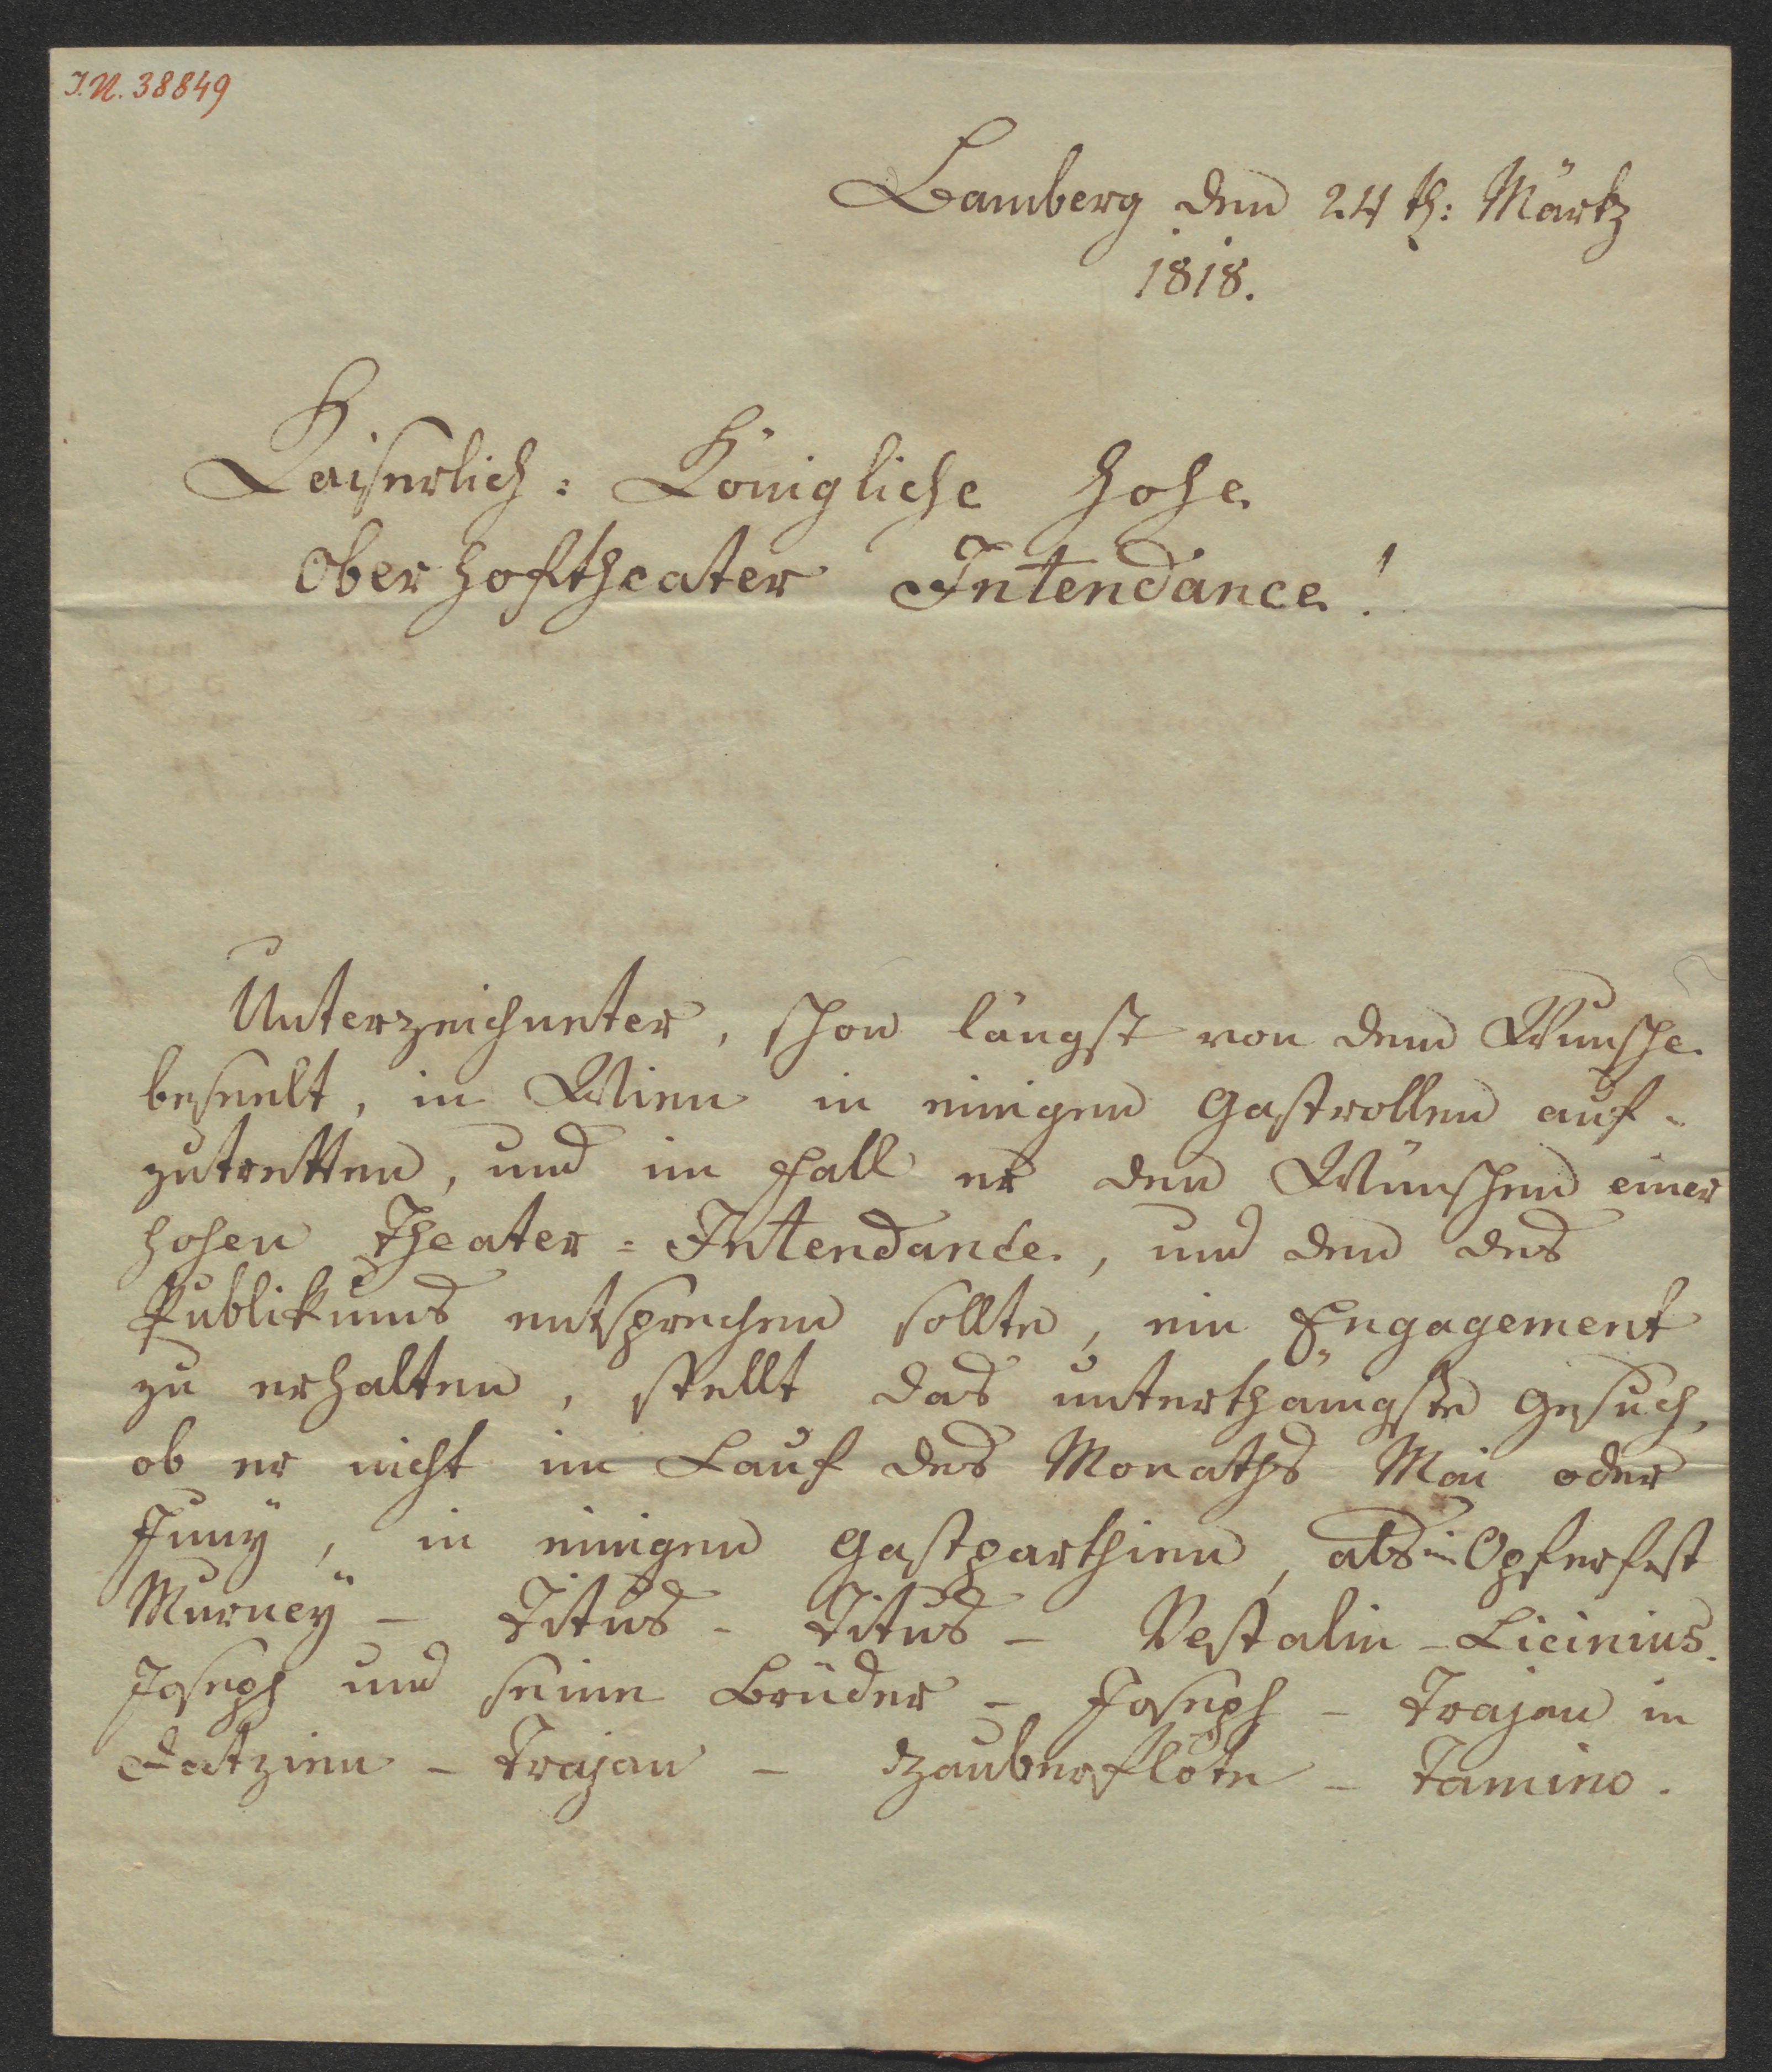 I.N. 38849
Bamberg den 24th: Märtz
1818.
Kaiserlich: Königliche hohe
Oberhoftheater Intendance!
Unterzeichneter, schon längst von dem Wunsche
beseelt, in Wien in einigen Gastrollen auf-
zutretten, und im Fall er den Wünschen einer
hohen Theater-Intendance, und den des
Publikums entsprechen sollte, ein Engagement
zu erhalten, stellt das unterthänigste Gesuch,
ob er nicht im Lauf des Monaths Mai oder
Juny, in einigen Gastparthien, als im Opferfest
Murney – Titus – Titus – Vestalin – Licinius.
Joseph und seine Brüder – Joseph – Trajan in
Datzien – Trajan – Zauberflöte – Tamino.